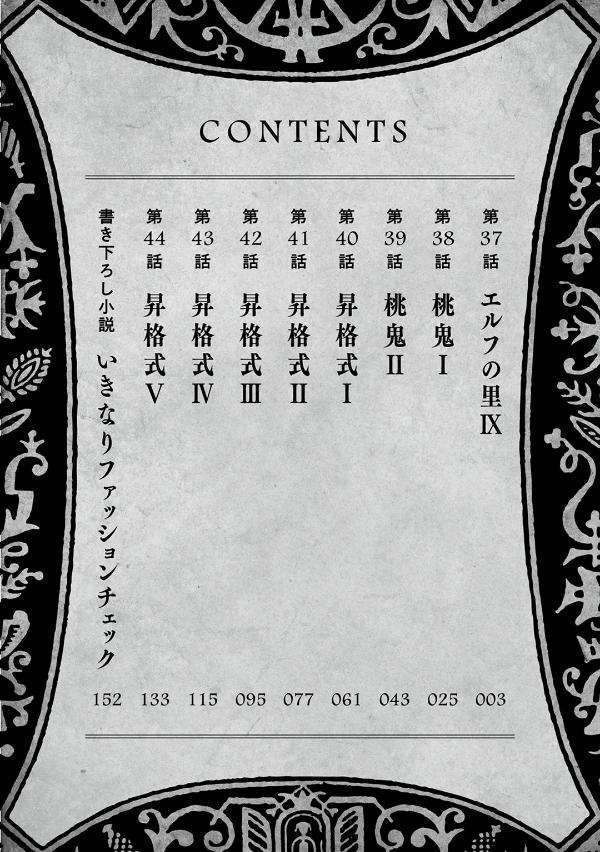 CONTENTS
第37話 エルフの里Ⅸ 003
第38話 桃鬼Ⅰ 025
第39話 桃鬼Ⅱ 043
第40話 昇格式Ⅰ 061
第41話 昇格式Ⅱ 077
第42話 昇格式Ⅲ 095
第43話 昇格式Ⅳ 115
第44話 昇格式Ⅴ 133
書き下ろし小説 いきなりファッションチェック 152